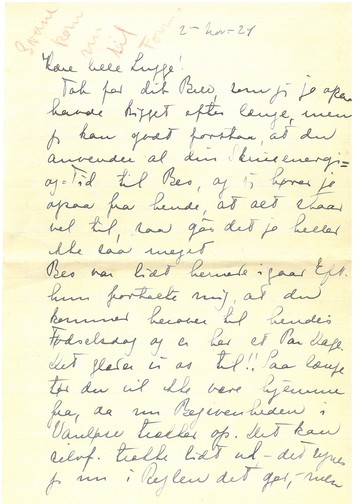 Svane
kom
nu
til
Form
2-Nov-21
Kære lille Lugge!
Tak for dit Brev, som jeg jo ogsaa
havde kigget efter længe, men
jeg kan godt forstaa, at du
anvender al din Skriveenergi=
og=Tid til Bes, og vi hører jo
ogsaa fra hende, at alt staar
vel til, saa gør det jo heller
ikke saa meget
Bes var lidt herude igaar Eft.
hun fortalte mig, at du
kommer herover til hendes
Fødselsdag og er her et Par Dage.
Det glæder vi os til!! Saa længe
tør du vel ikke være hjemme
fra, da nu Begivenheden i
trækker op. Det kan
selvf. trække lidt ud - det synes
jeg nu i Reglen det gør, - men